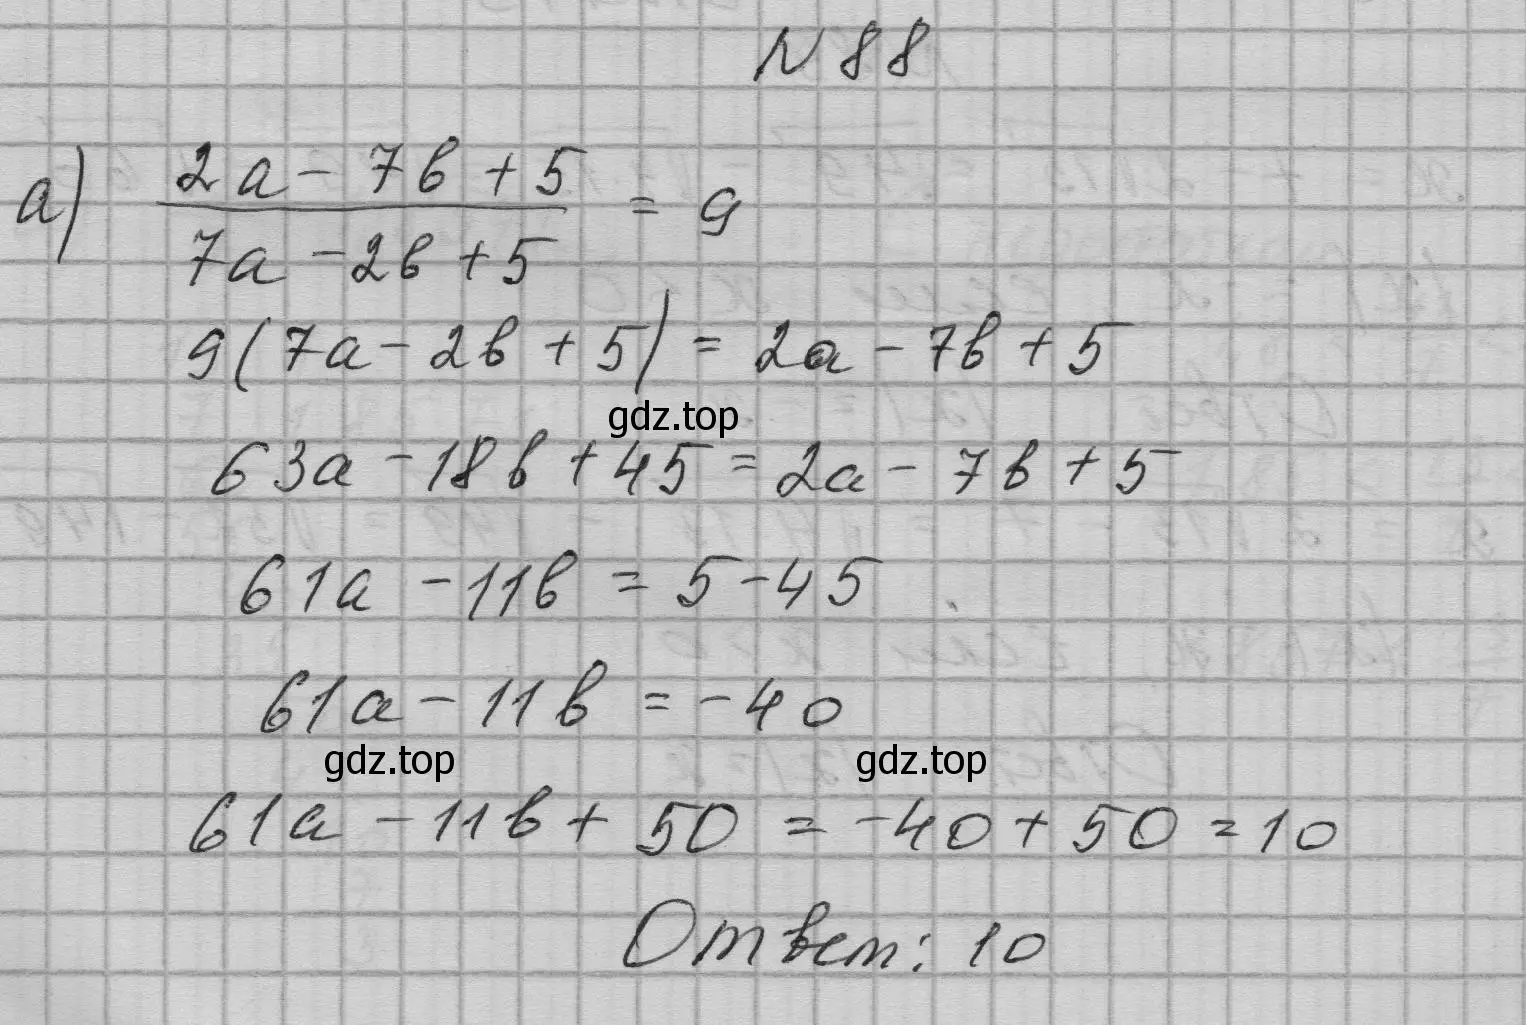 N 88
а) (2a - 7b + 5)/(7a - 2b + 5) = 9
9(7a - 2b + 5) = 2a - 7b + 5
gdz.top
63a - 18b + 45 = 2a - 7b + 5
61a - 11b = 5 - 45
61a - 11b = -40
gdz.top gdz.top
61a - 11b + 50 = -40 + 50 = 10
Ответ: 10